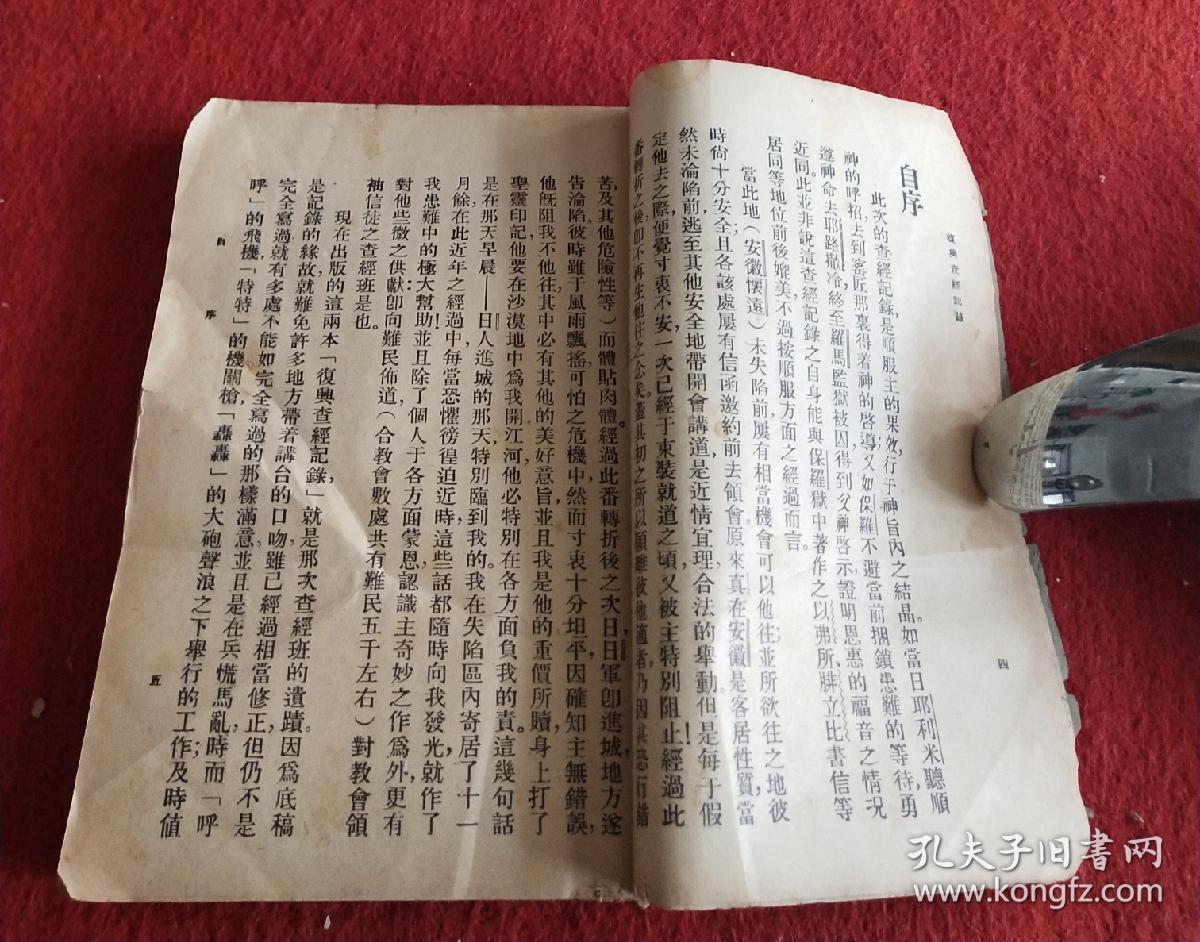 復興查經記錄
自序
此次的查經記錄,是順服主的果效,行于神旨內之結晶。如當日耶利米聽順
神的呼招去到窰匠那裏得着神的啓導,又如保羅不避當前捆鎖患難的等待,勇
遂神命去耶路撒冷,終至羅馬監獄被囚,得到父神啓示證明恩惠的福音之情况
近同。此並非說這查經記錄之自身能與保羅獄中著作之以弗所,腓立比書信等
居同等地位前後媲美,不過按順服方面之經過而言。
當此地(安徽懷遠)未失陷前,屢有相當機會可以他往;並所欲往之地彼
時尙十分安全;且各該處屢有信函邀約前去領會;原來真在安徽是客居性質,當
然未淪陷前逃至其他安全地帶開會講道是近情宜理,合法的舉動!但是每于假
定他去之際,便覺寸衷不安,一次已經于束裝就道之頃,又被主特別阻止,經過此
番轉折之後,即不再生他往之念矣。蓋其初之所以願離彼他適者,乃因其恐有錯
四
苦,及其他危險性等)而體貼肉體。經過此番轉折後之次日,日軍卽進城,地方遂
告淪陷。彼時雖于風雨飄搖,可怕之危機中,然而寸衷十分坦平,因確知主無錯誤,
他旣阻我不他往,其中必有其他的美好意旨,並且我是他的重價所贖,身上打了
聖靈印記,他要在沙漠地中爲我開江河,他必特別在各方面負我的責。這幾句話
是在那天早晨——日人進城的那天特別臨到我的。我在失陷區內寄居了十一
月餘,在此近年之經過中,每當恐懼徬徨迫近時,這些話都隨時向我發光,就作了
我患難中的極大幫助!並且除了個人于各方面蒙恩認識主奇妙之作爲外,更有
對他些微之供獻:卽向難民佈道(合教會數處共有難民五千左右)對教會領
袖信徒之查經班是也。
現在出版的這兩本「復興查經記錄,」就是那次查經班的遺蹟。因爲底稿
是記錄的緣故,就難免許多地方帶着講台的口吻,雖已經過相當修正,但仍不是
完全寫過,就有多處不能如完全寫過的那樣滿意,並且是在兵慌馬亂,時而「呼
呼」的飛機,「特特」的機關槍,「轟轟」的大砲聲浪之下舉行的工作;及時值
自序
五
孔夫子旧書网
www.kongfz.com